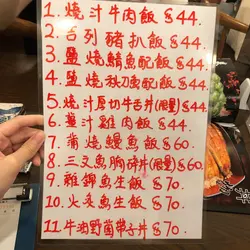 1. 燒汁牛肉飯 $44.
2. 吉列豬扒飯 $44.
3. 鹽燒鯖魚配飯 $44.
4. 鹽燒秋刀魚配飯 $44.
5. 燒汁厚切牛舌丼(限量) $44.
6. 薑汁雞肉飯 $44.
7. 蒲燒鰻魚飯 $60.
8. 三文魚腩碎丼(限量) $60.
9. 雜錦魚生飯 $70.
10. 火炙魚生飯 $70.
11. 牛肉野菌帶子丼 $70.